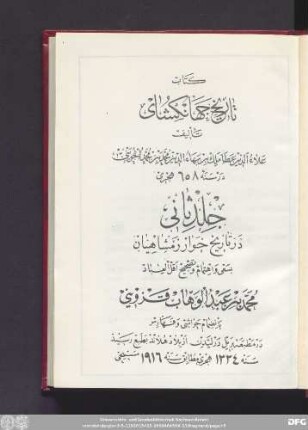 كتاب
تاريخ جهانگشاى
تأليف
علاء الدين عطا ملك بن بهاء الدين محمد بن محمد الجوينى
در سنه ٦٥٨ هجرى
جلد ثانى
در تاريخ خوارزمشاهيان
بسعى و اهتمام و تصحيح اقل العباد
محمد بن عبد الوهاب قزوينى
بانضمام حواشى و فهارس
در مطبعهٔ بريل در ليدن از بلاد هلاند بطبع رسيد
سنه ١٣٣٤ هجرى مطابق سنه ١٩١٦ مسيحى
DFG